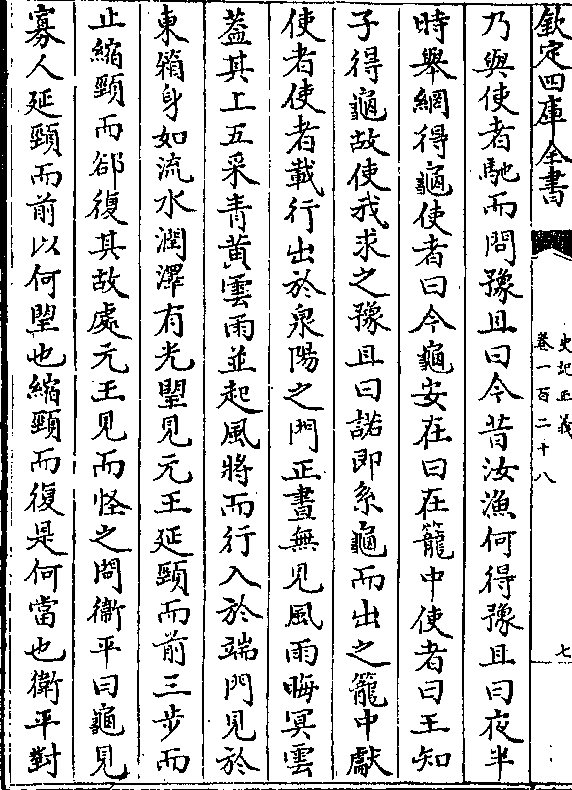 欽定四庫全書
史記正義
卷一百二十八
七
乃與使者馳而問豫且曰今昔汝漁何得豫且曰夜半
時舉網得龜使者曰今龜安在曰在籠中使者曰王知
子得龜故使我求之豫且曰諾即系龜而出之籠中獻
使者使者載行出於泉陽之門正晝無見風雨晦冥雲
蓋其上五采青黄雲雨並起風將而行入於端門見於
東箱身如流水潤澤有光望見元王延頸而前三步而
止縮頸而郤復其故處元王見而怪之問衞平曰龜見
寡人延頸而前以何望也縮頸而復是何當也衛平對